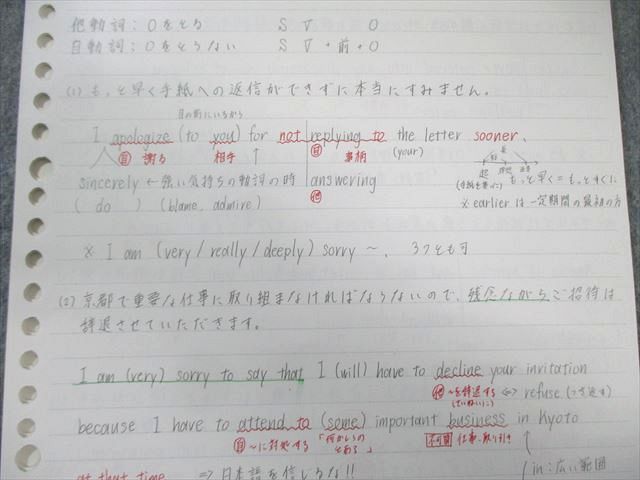 他動詞：Oをとる　S V O
自動詞：Oをとらない　S V + 前 + O
(1) もっと早く手紙への返信ができずに本当にすみません。
目の前にいるから
I apologize (to you) for not replying to the letter sooner.
自 謝る 相手 ↑ 自 事柄 (your)
sincerely ← 強い気持ちの動詞の時 answering
( do ) (blame, admire) 他
(手紙を書いた) もっと早く = もっとすぐに
※ earlier は 一定期間の最初の方
※ I am (very / really / deeply) sorry ~. 3つとも可
(2) 京都で重要な仕事に取り組まなければならないので、残念ながらご招待は
辞退させていただきます。
I am (very) sorry to say that I (will) have to decline your invitation
他 ~を辞退する (ていねいに) ⇔ refuse (つき返す)
because I have to attend to (some) important business in Kyoto
自 ~に対処する 「何かしらの 不可算 仕事、取り引き ↑
at that time ⇒ 日本語を信じるな!! in：広い範囲